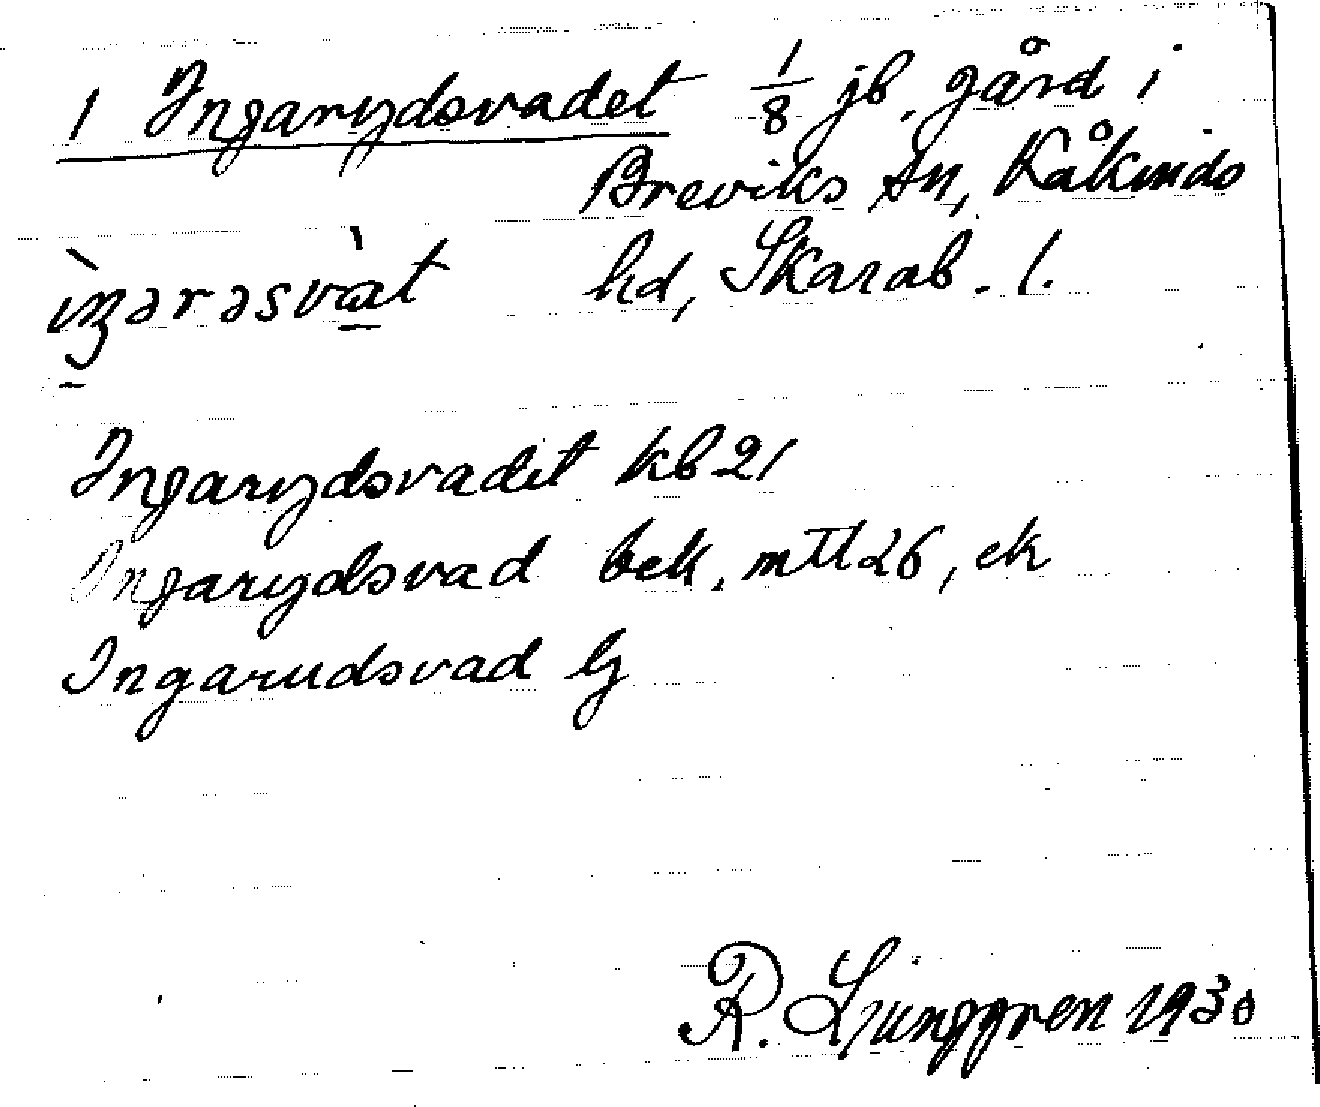 1 Ingarydsvadet 1/8 jb. gård i
Breviks sn, Kåkinds
ìŋarasvàt hd, Skarab. l.
Ingarydsvadet kb 21
Ingarydsvad bek, mtl 26, ek
Ingarudsvad lj
R. Ljunggren 1930